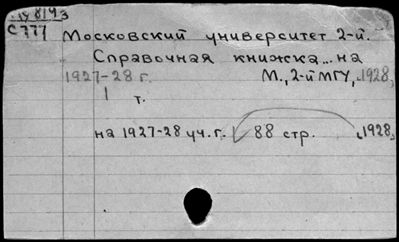 С777
Московский университет 2-й.
Справочная книжка... на
1927-28 г. М., 2-й МГУ, 1928,
1 т.
на 1927-28 уч. г. 88 стр. 1928,